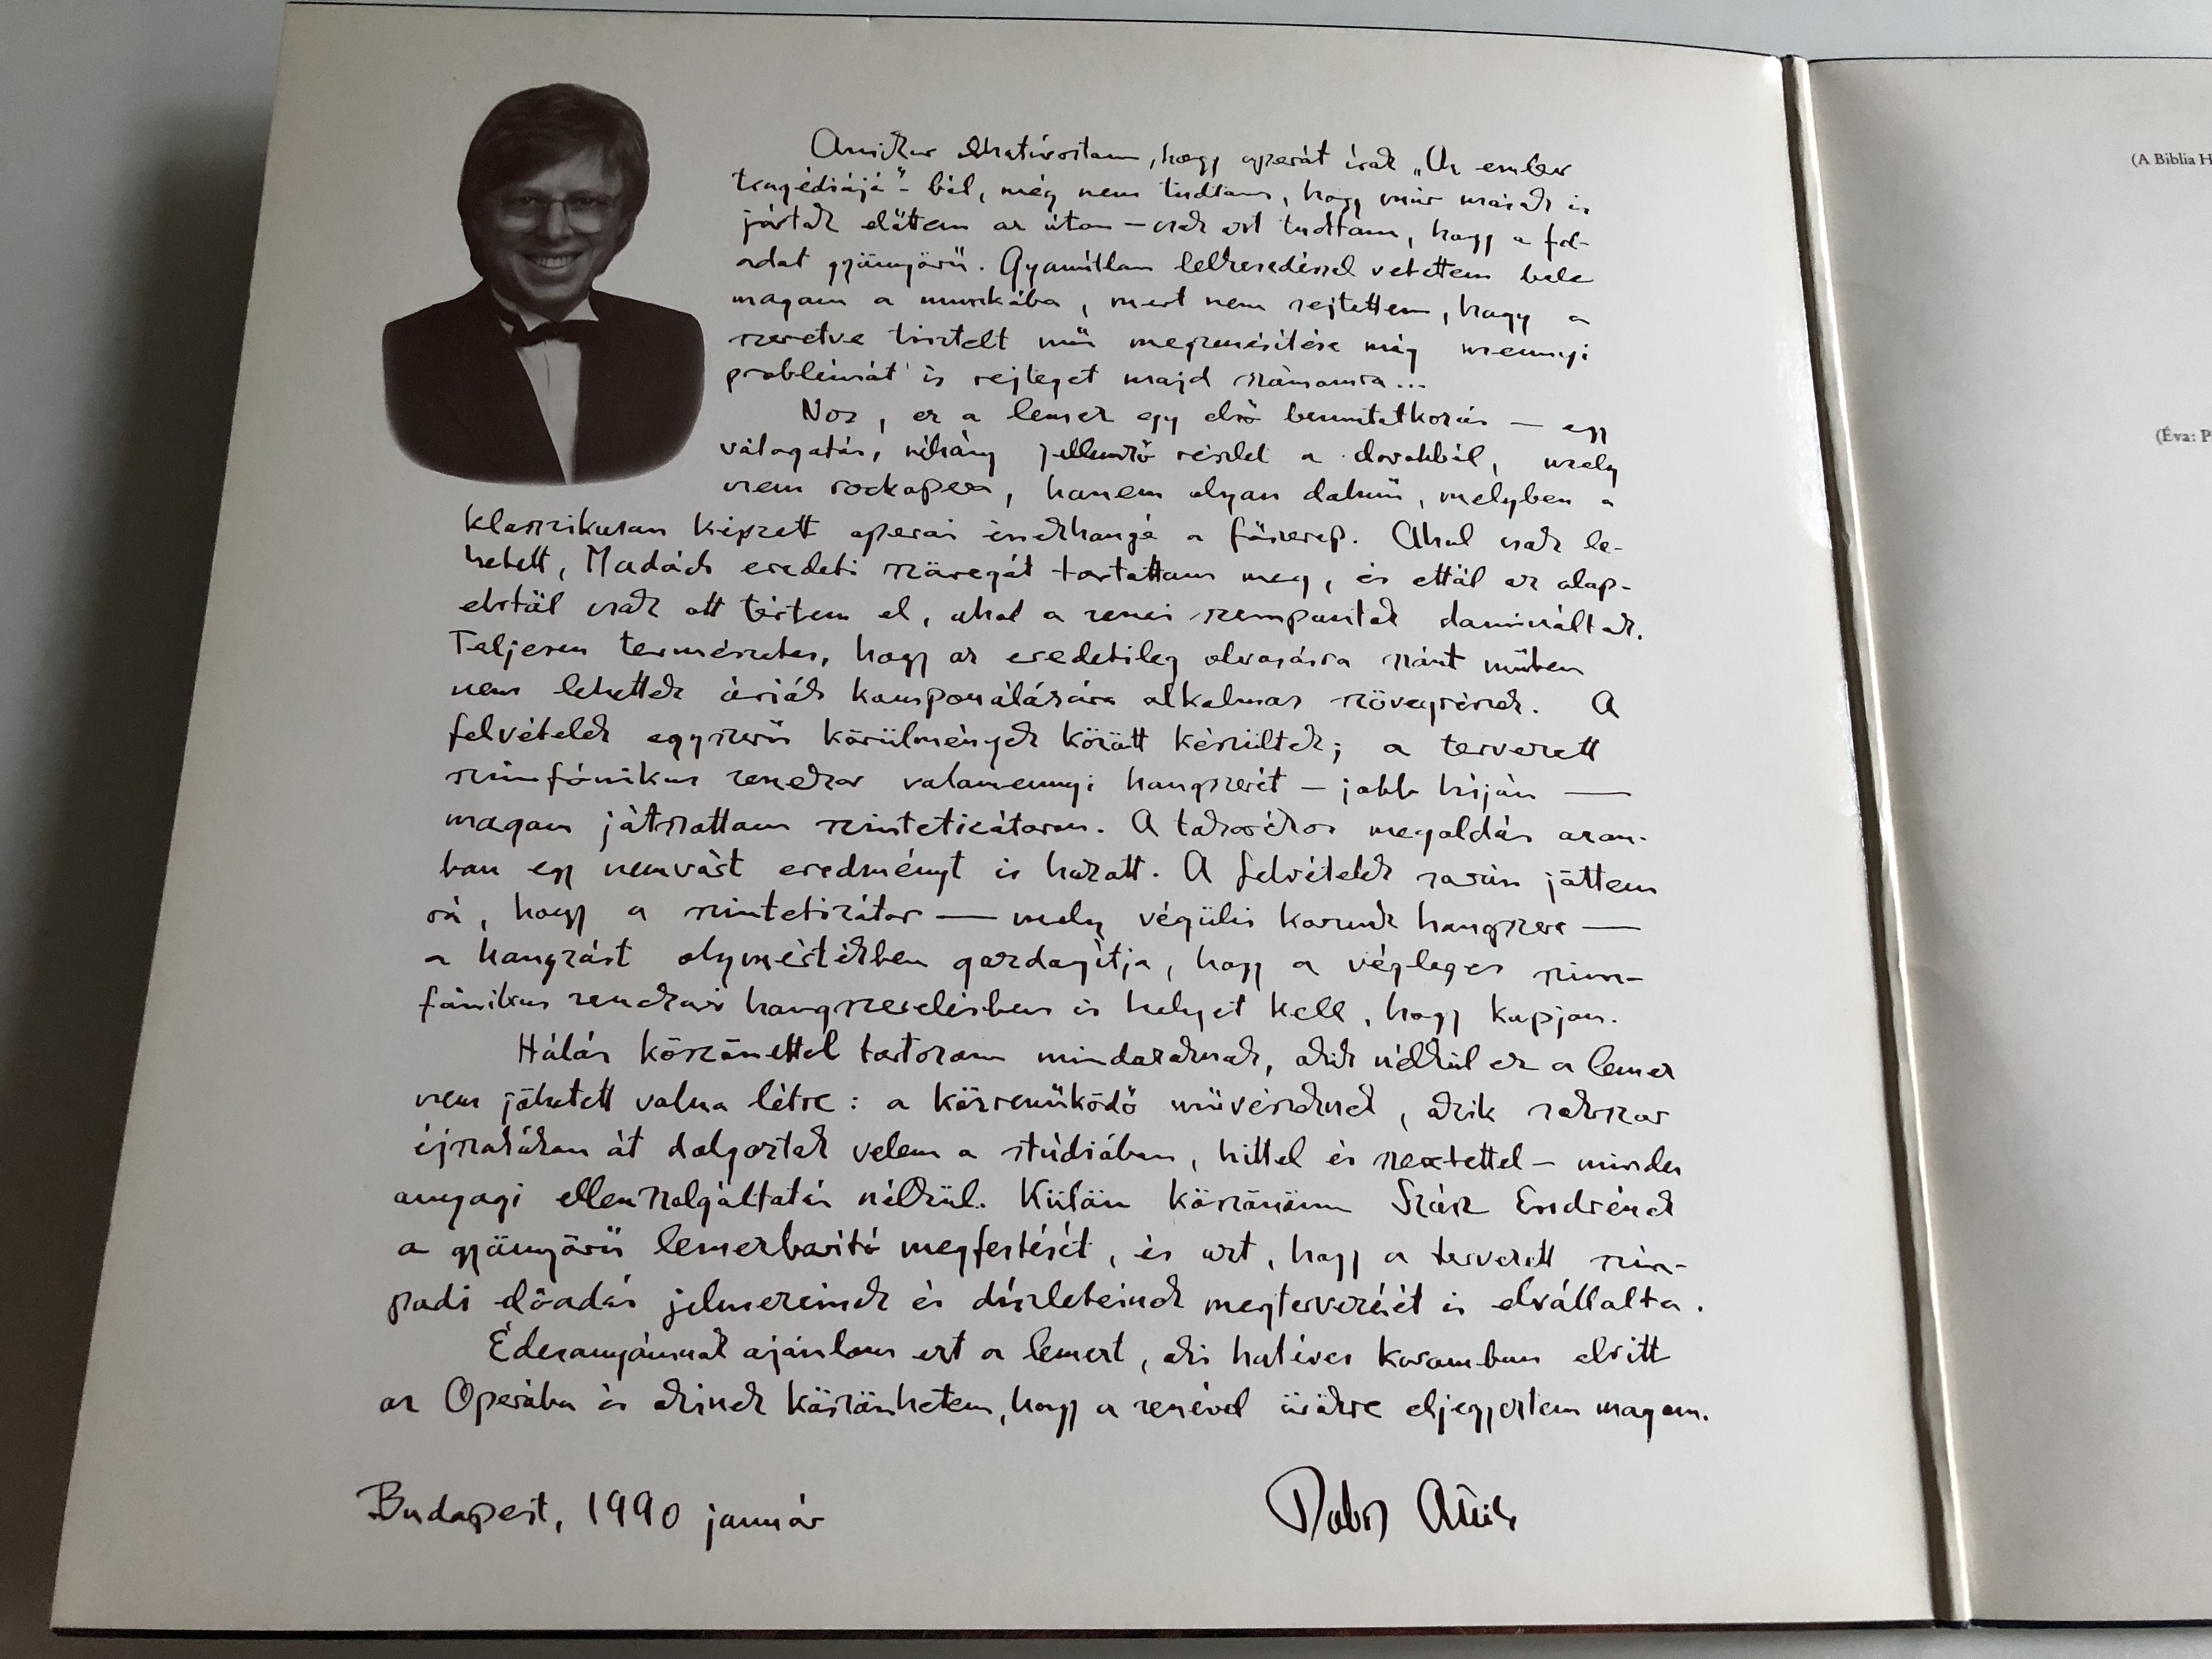 Amikor elhatároztam, hogy operát írok „Az ember
tragédiájá"-ból, még nem tudtam, hogy már mások is
jártak előttem az úton — csak azt tudtam, hogy a fel-
adat gyönyörű. Gyanútlan lelkesedéssel vetettem bele
magam a munkába, mert nem sejtettem, hogy a
szeretve tisztelt mű megzenésítése még mennyi
problémát is rejteget majd számomra...
Nos, ez a lemez egy első bemutatkozás — egy
válogatás, néhány jellemző részlet a darabból, mely
nem rockopera, hanem olyan dalmű, melyben a
klasszikusan képzett operai énekhangé a főszerep. Ahol csak le-
hetett, Madách eredeti szövegét tartottam meg, és ettől az alap-
elvtől csak ott tértem el, ahol a zenei szempontok domináltak.
Teljesen természetes, hogy az eredetileg olvasásra szánt műben
nem lehettek áriák komponálására alkalmas szövegrészek. A
felvételek egyszerű körülmények között készültek; a tervezett
szimfónikus zenekar valamennyi hangszerét — jobb híján —
magam játszottam szintetizátoron. A takarékos megoldás azon-
ban egy nemvárt eredményt is hozott. A felvételek során jöttem
rá, hogy a szintetizátor — mely végülis korunk hangszere —
a hangzást olymértékben gazdagítja, hogy a végleges szim-
fónikus zenekari hangszerelésben is helyet kell, hogy kapjon.
Hálás köszönettel tartozom mindazoknak, akik nélkül ez a lemez
nem jöhetett volna létre: a közreműködő művészeknek, akik sokszor
éjszakákon át dolgoztak velem a stúdióban, hittel és szeretettel — minden
anyagi ellenszolgáltatás nélkül. Külön köszönöm Szász Endrének
a gyönyörű lemezborító megfestését, és azt, hogy a tervezett szín-
padi előadás jelmezeinek és díszleteinek megtervezését is elvállalta.
Édesanyámnak ajánlom ezt a lemezt, aki hatéves koromban elvitt
az Operába és akinek köszönhetem, hogy a zenével örökre eljegyeztem magam.
Budapest, 1990 január
Attila
(A Biblia H
(Éva: P